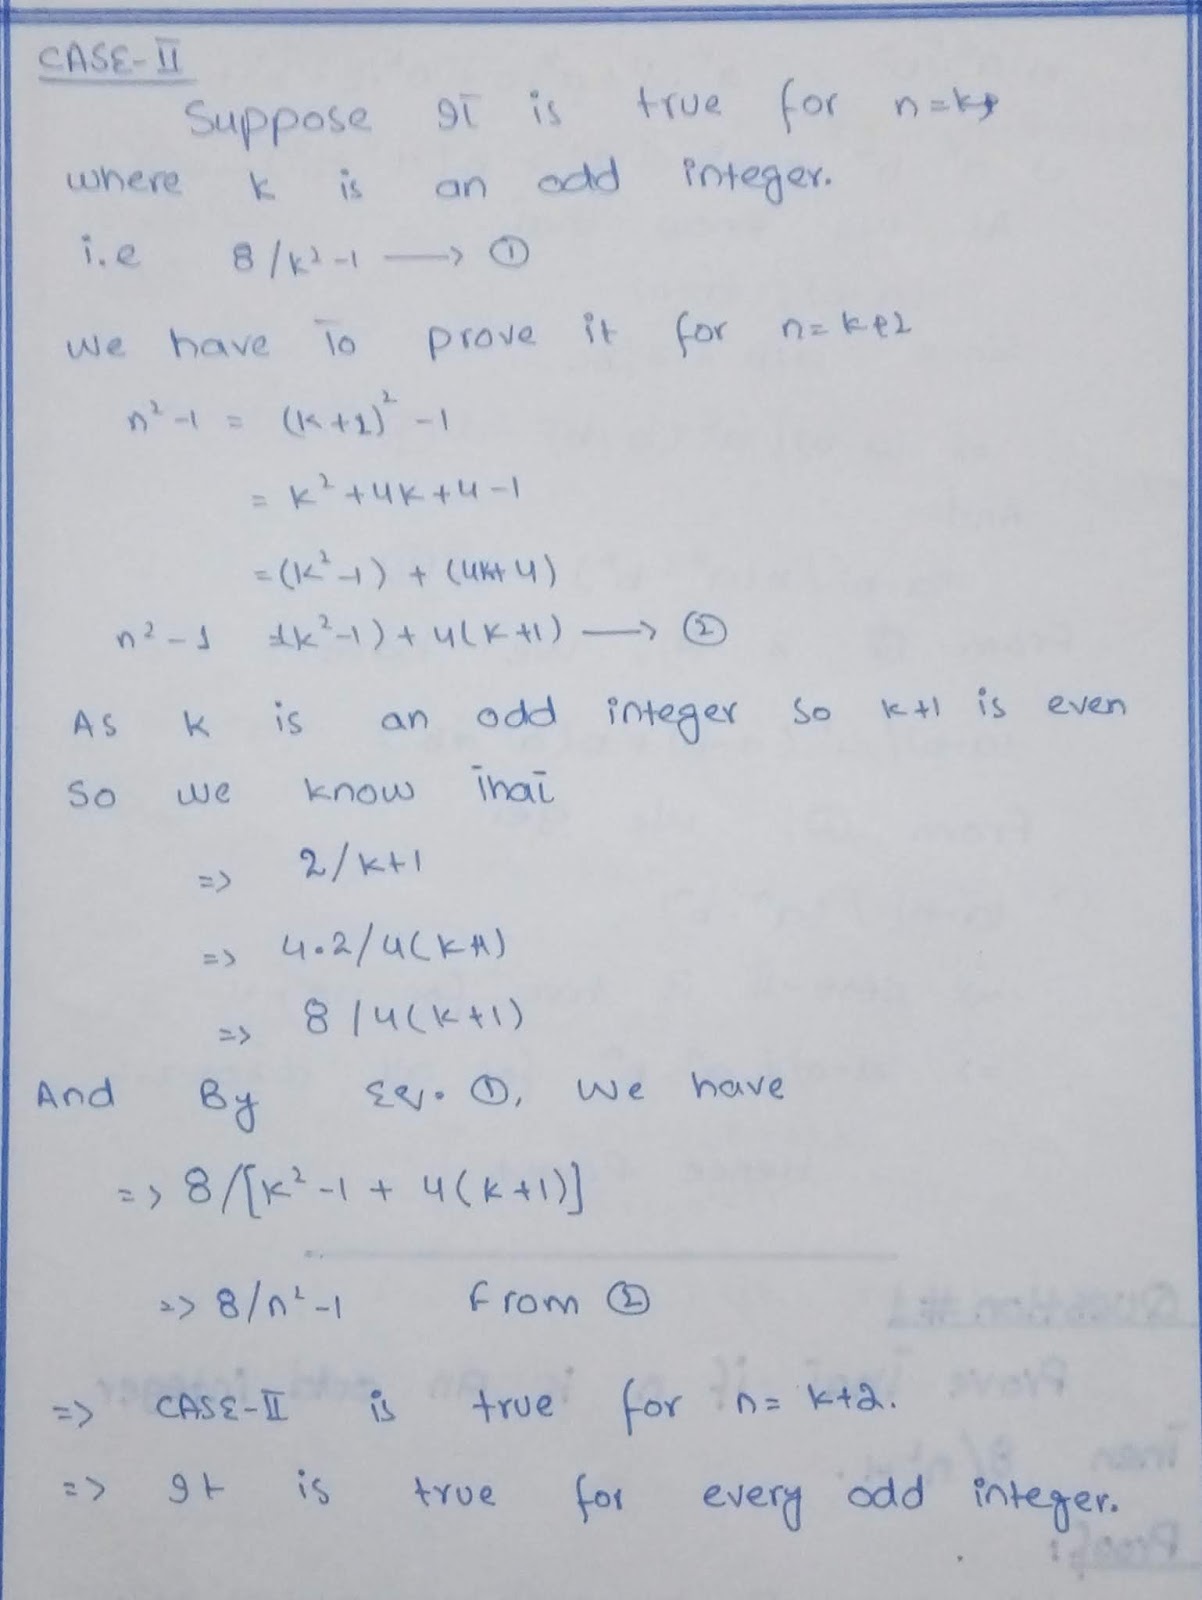 CASE-II
Suppose It is true for n=k,
where k is an odd integer.
i.e 8/k²-1 ⟶ ①
we have To prove it for n=k+2
n²-1 = (k+2)² -1
= k²+4k+4-1
=(k²-1) + (4k+4)
n²-1 =(k²-1)+4(k+1) ⟶ ②
As k is an odd integer so k+1 is even
So we know That
=> 2/k+1
=> 4.2/4(k+1)
=> 8/4(k+1)
And By Eq. ①, we have
=> 8/[k²-1 + 4(k+1)]
=> 8/n²-1 from ②
=> CASE-II is true for n= k+2.
=> It is true for every odd integer.
Question #1
Prove That if n is An odd integer
Then
Proof: